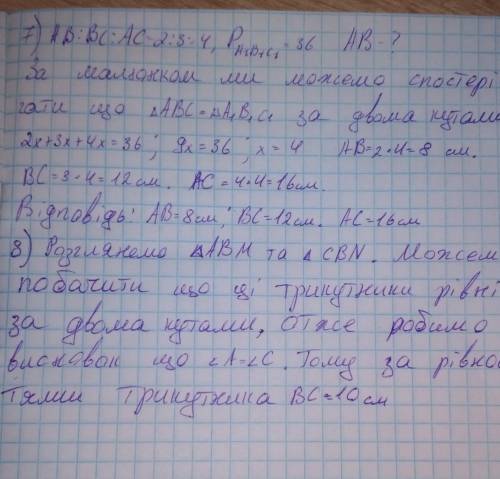 7) AB:BC:AC=2:3:4, P A₁B₁C₁=36 AB-?
За малюнком ми можемо спостері
гати що △ABC=△A₁B₁C₁ за двома кутами
2x+3x+4x=36; 9x=36; x=4 AB=2•4=8 см.
BC=3•4=12см. AC=4•4=16см.
Відповідь: AB=8см; BC=12см. AC=16см
8) Розглянемо △ABM та △CBN. Можем
побачити що ці трикутники рівні
за двома кутами, отже робимо
висновок що ∠A=∠C. Тому за рівнос
тями трикутника BC=10см